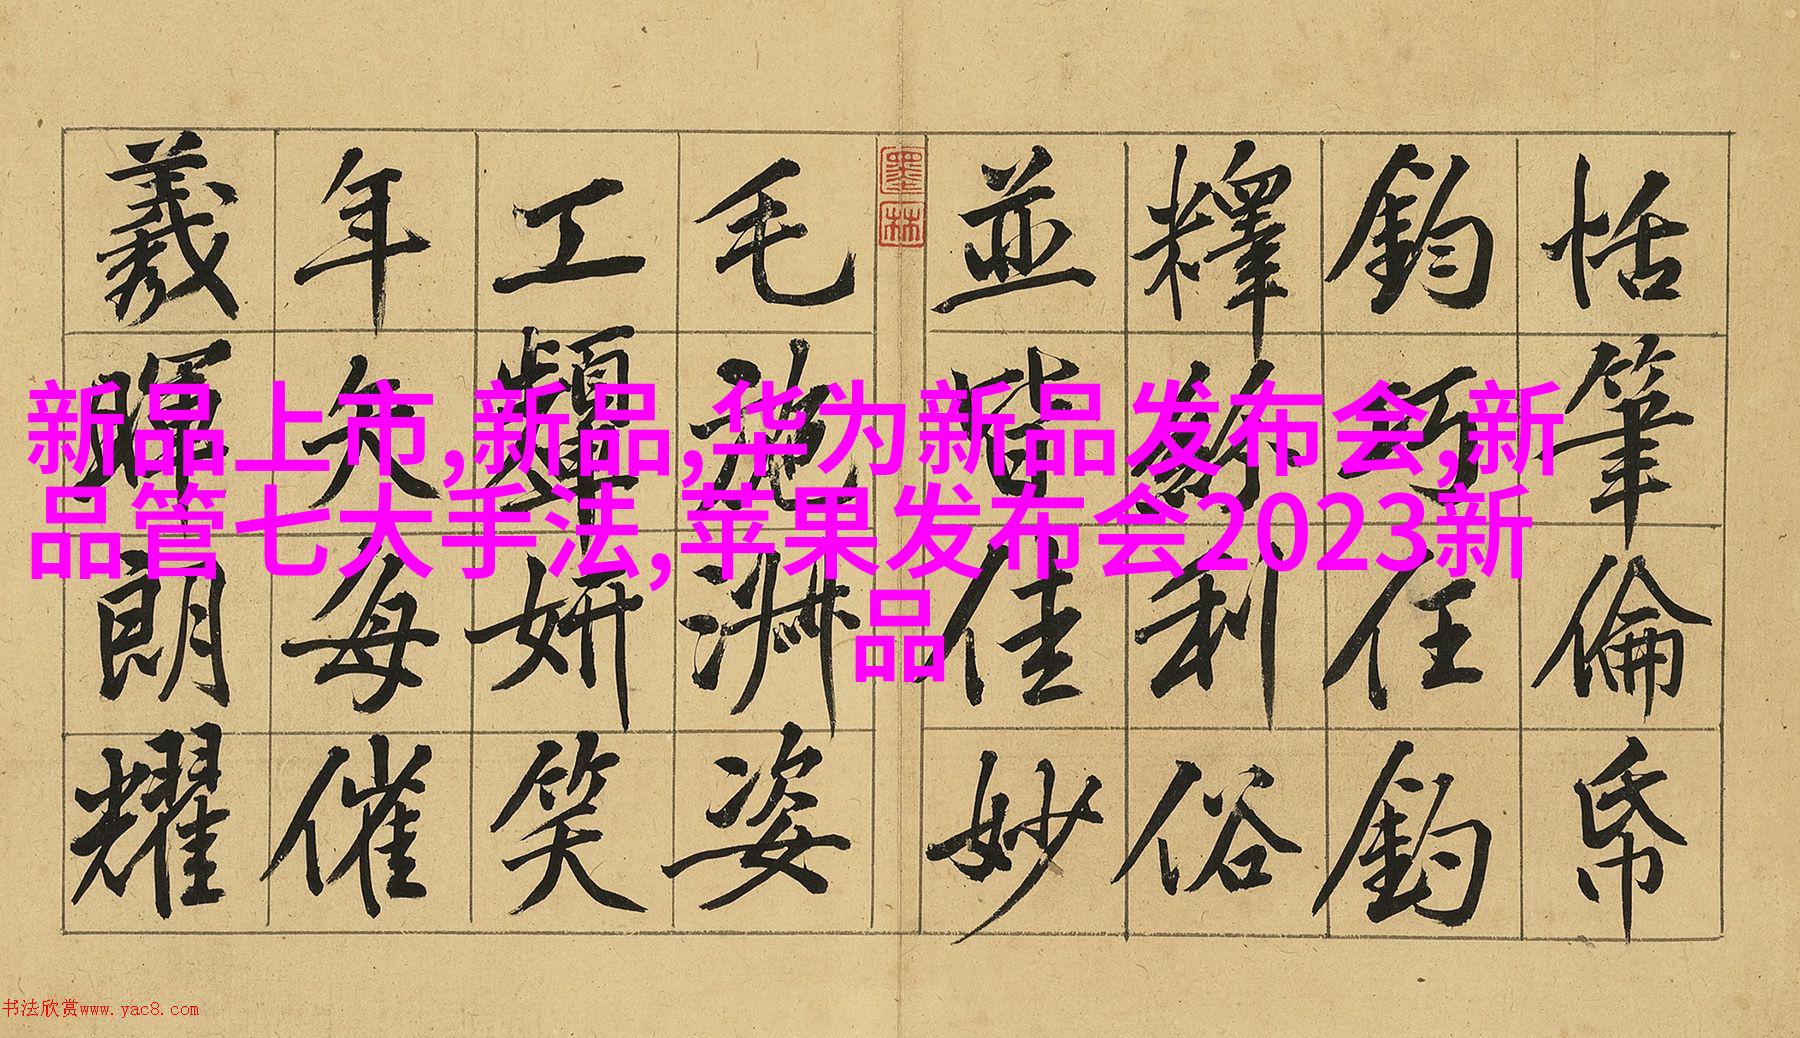 恬筆倫帋
鈞巧任釣
釋紛利俗
並皆佳妙
毛施淑姿
工顰妍笑
年矢每催
羲暉朗耀
墨林
新品上市,新品,华为新品发布会,新
品管七大手法,苹果发布会2023新
品
书法欣赏www.yac8.com